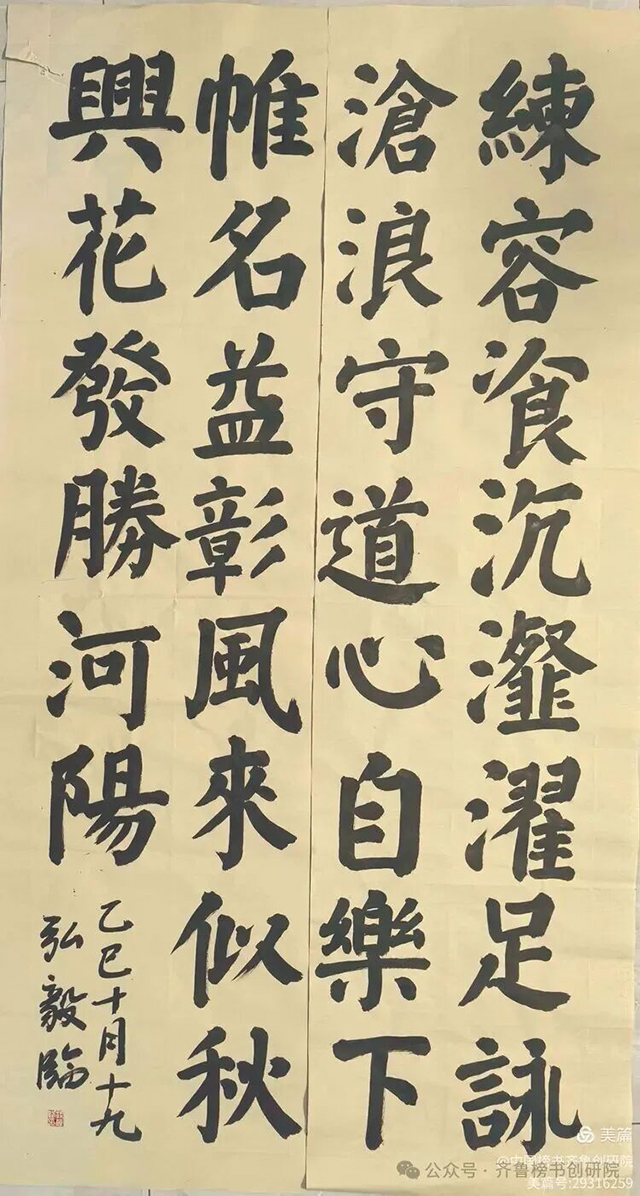 練容飡沉瀣濯足詠
滄浪守道心自樂下
帷名益彰風來似秋
興花發勝河陽
乙巳十月十九
弘毅臨
美篇
@中国榜书齐鲁创研院
公众号·齐鲁榜书创研院
美篇号:29316259